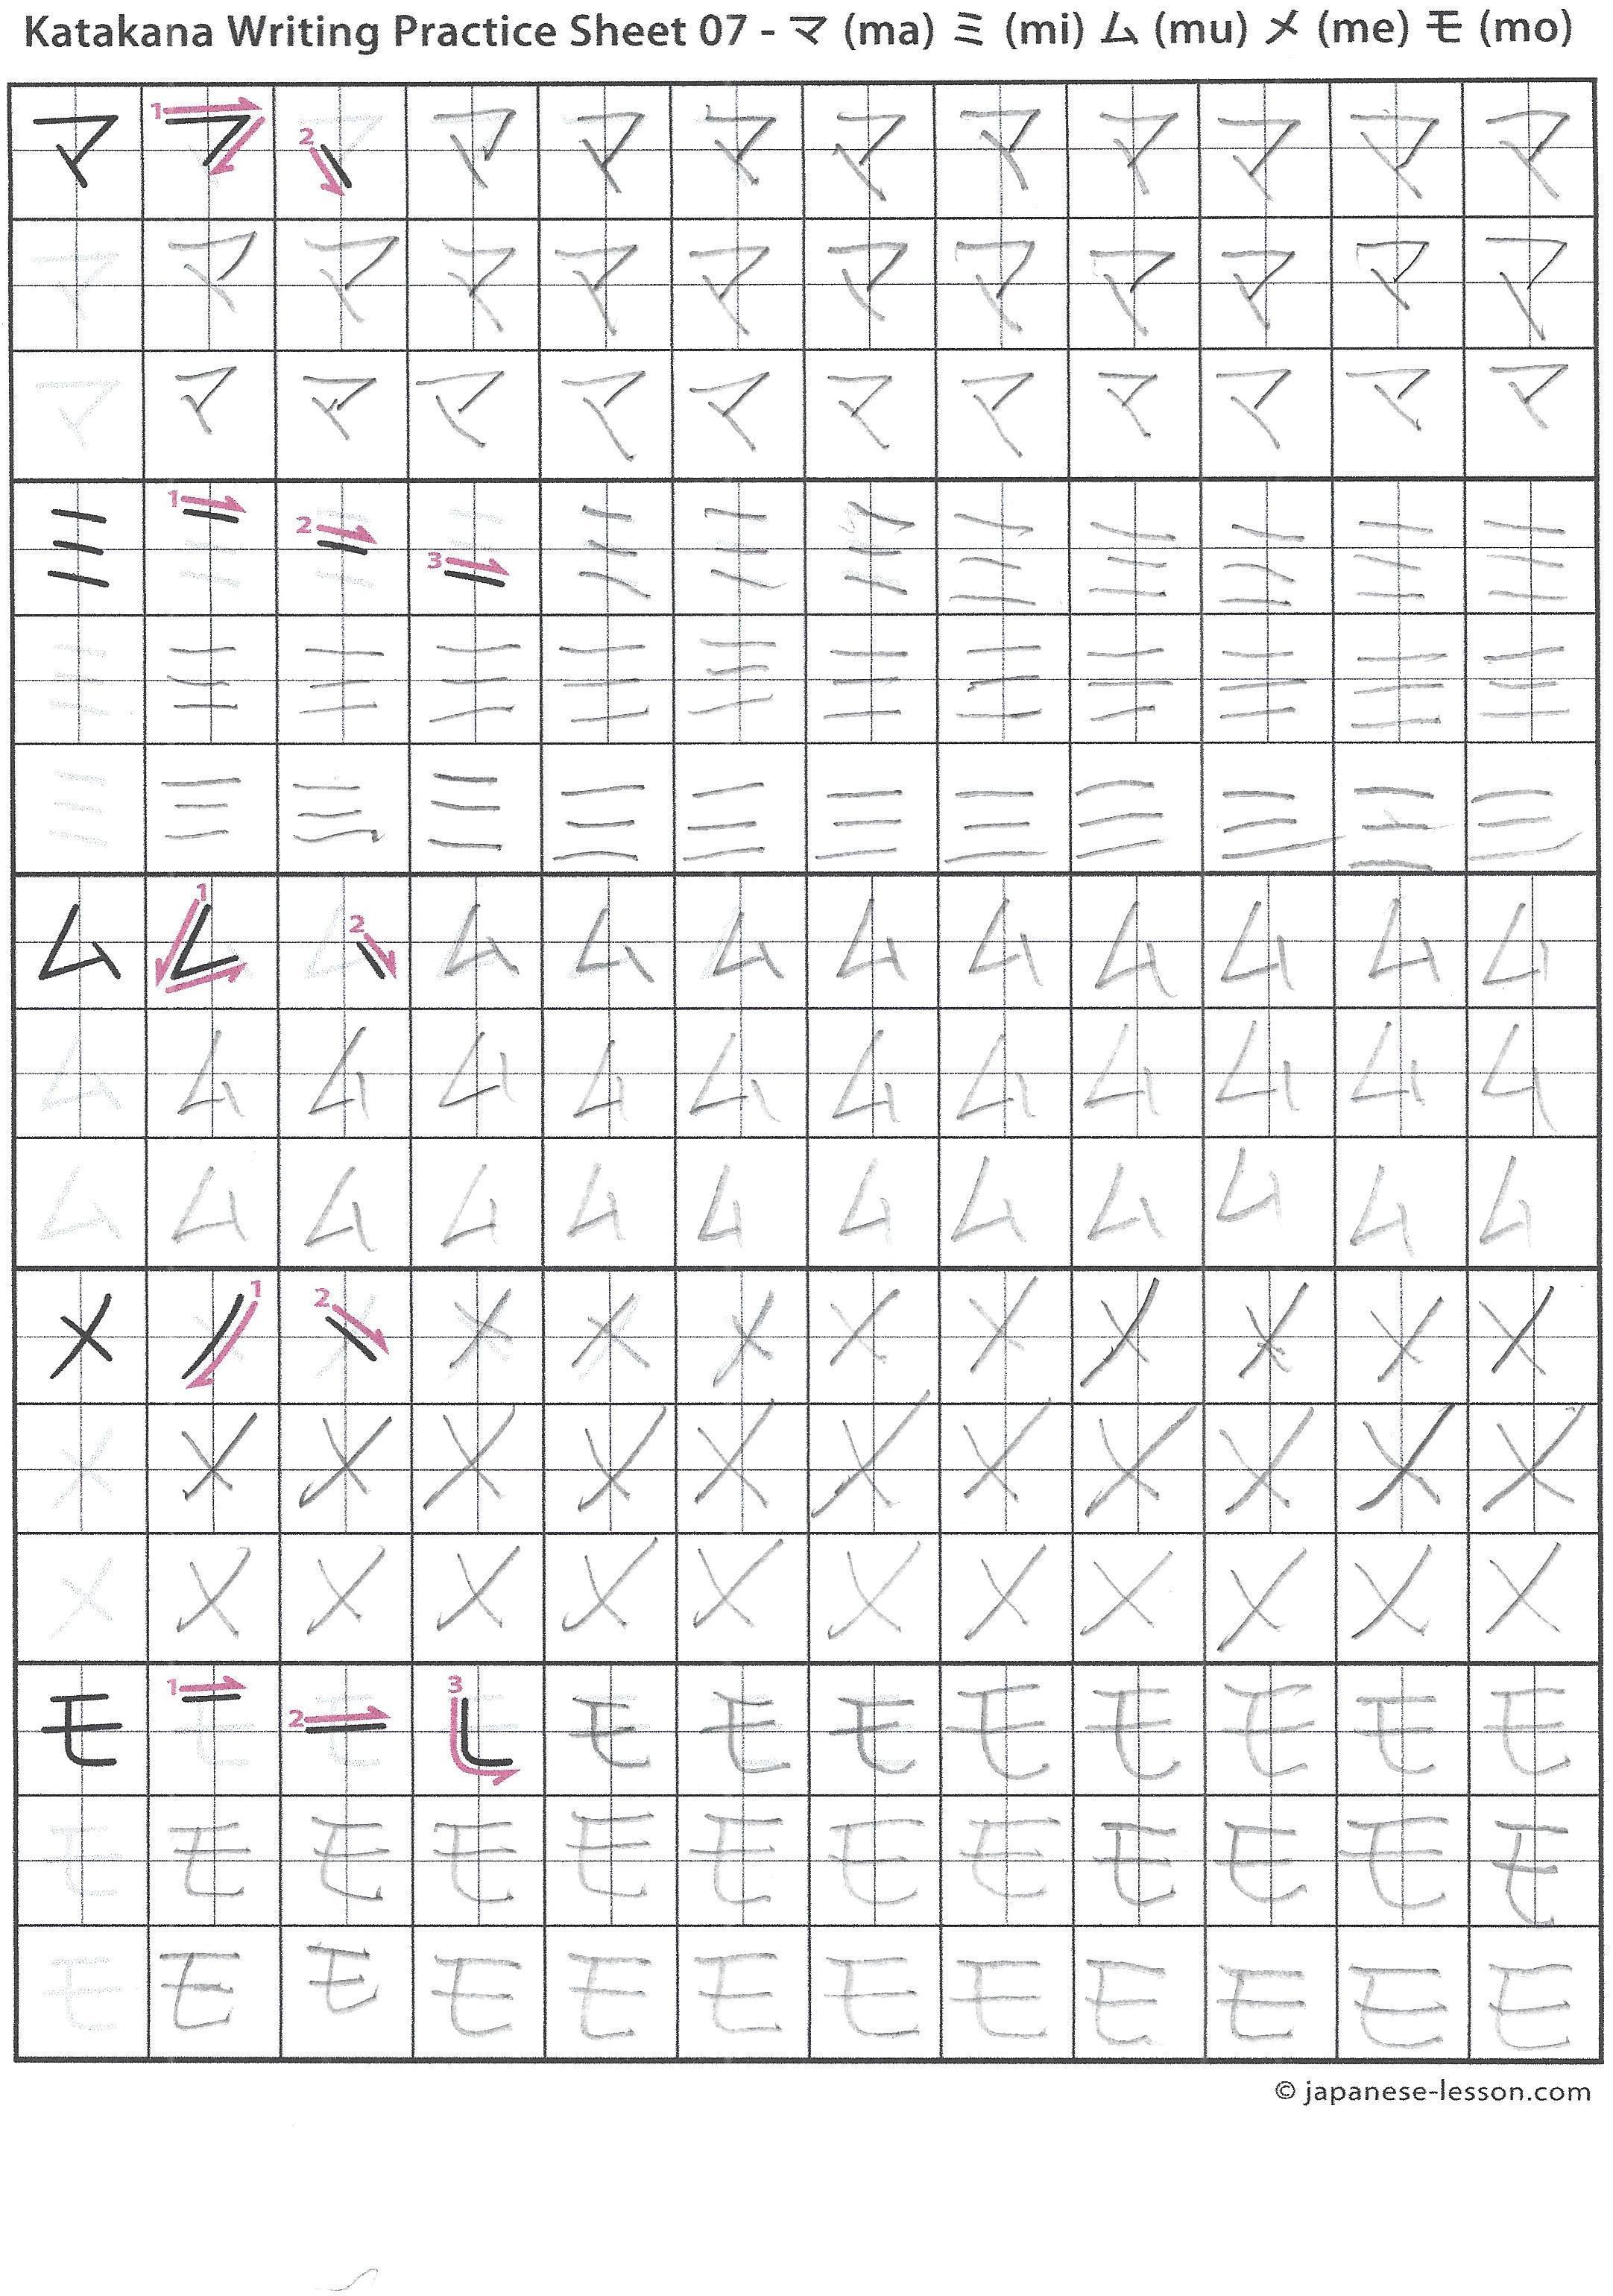 Katakana Writing Practice Sheet 07 - マ (ma) ミ (mi) ム (mu) メ (me) モ (mo)
マ 1 2 マ マ マ マ マ マ マ マ マ
マ マ マ マ マ マ マ マ マ マ マ マ
マ マ マ マ マ マ マ マ マ マ マ マ
ミ 1 2 3 ミ ミ ミ ミ ミ ミ ミ ミ
ミ ミ ミ ミ ミ ミ ミ ミ ミ ミ ミ ミ
ミ ミ ミ ミ ミ ミ ミ ミ ミ ミ ミ ミ
ム 1 2 ム ム ム ム ム ム ム ム ム
ム ム ム ム ム ム ム ム ム ム ム ム
ム ム ム ム ム ム ム ム ム ム ム ム
メ 1 2 メ メ メ メ メ メ メ メ メ
メ メ メ メ メ メ メ メ メ メ メ メ
メ メ メ メ メ メ メ メ メ メ メ メ
モ 1 2 3 モ モ モ モ モ モ モ モ
モ モ モ モ モ モ モ モ モ モ モ モ
モ モ モ モ モ モ モ モ モ モ モ モ
© japanese-lesson.com